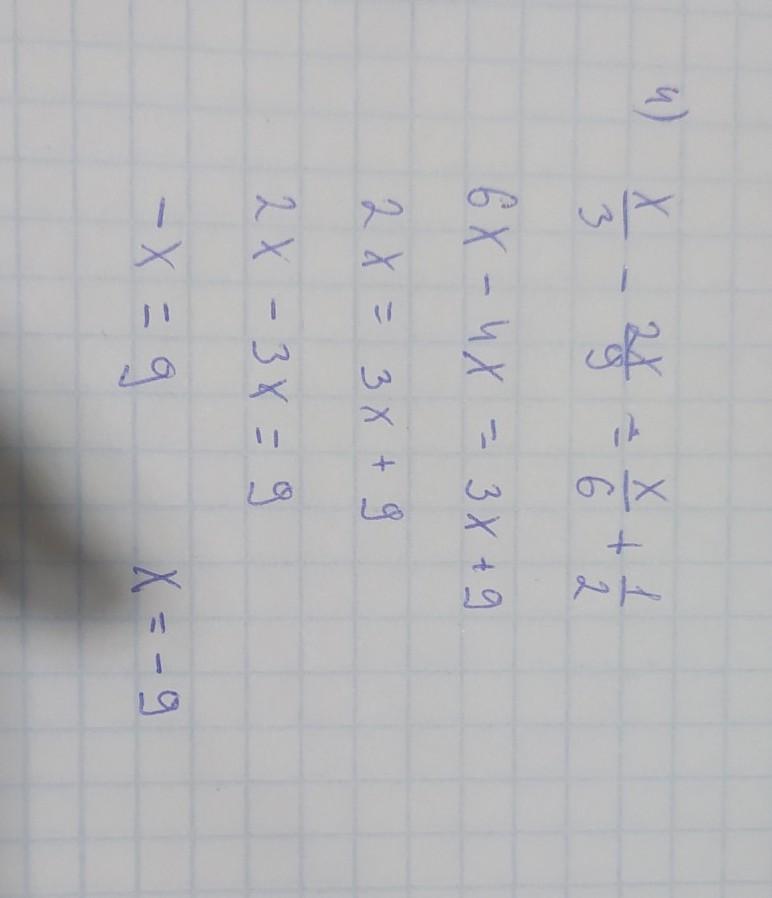 4) x/3 - 2x/9 = x/6 + 1/2
6x - 4x = 3x + 9
2x = 3x + 9
2x - 3x = 9
-x = 9 x = -9